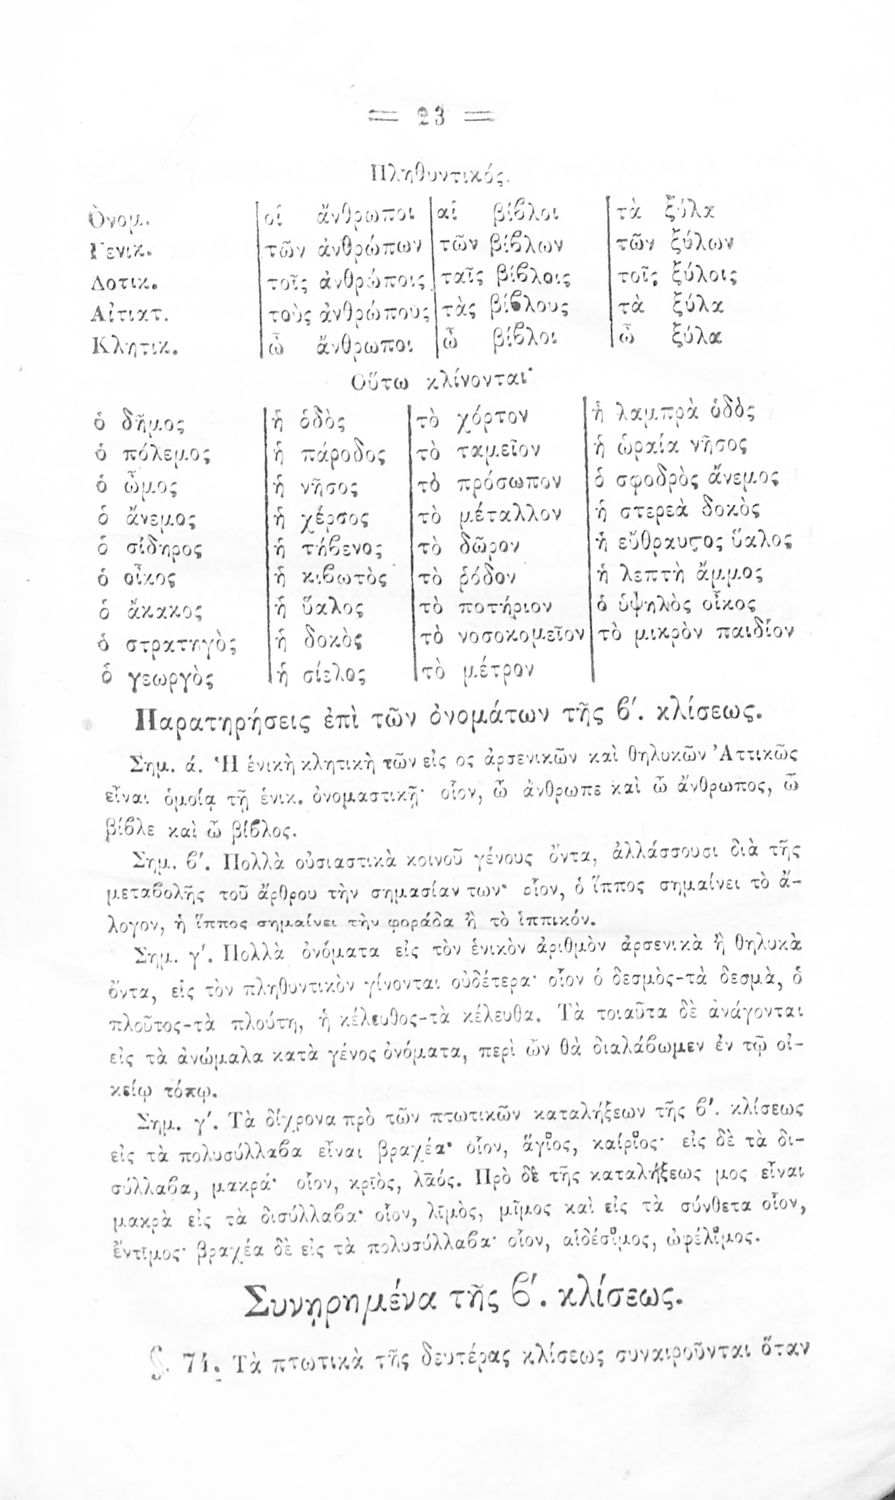 = 23 =
Πληθυντικός.
Ὀνομ. οἱ ἄνθρωποι αἱ βίβλοι τὰ ξύλα
Γενικ. τῶν ἀνθρώπων τῶν βίβλων τῶν ξύλων
Δοτικ. τοῖς ἀνθρώποις ταῖς βίβλοις τοῖς ξύλοις
Αἰτιατ. τοὺς ἀνθρώπους τὰς βίβλους τὰ ξύλα
Κλητικ. ὦ ἄνθρωποι ὦ βίβλοι ὦ ξύλα
Οὕτω κλίνονται·
ὁ δῆμος ἡ ὁδὸς τὸ χόρτον ἡ λαμπρὰ ὁδὸς
ὁ πόλεμος ἡ πάροδος τὸ ταμεῖον ἡ ὡραία νῆσος
ὁ ὦμος ἡ νῆσος τὸ πρόσωπον ὁ σφοδρὸς ἄνεμος
ὁ ἄνεμος ἡ χέρσος τὸ μέταλλον ἡ στερεὰ δοκὸς
ὁ σίδηρος ἡ τήβενος τὸ δῶρον ἡ εὔθραυστος ὕαλος
ὁ οἶκος ἡ κιβωτὸς τὸ ῥόδον ἡ λεπτὴ ἄμμος
ὁ ἄκακος ἡ ὕαλος τὸ ποτήριον ὁ ὑψηλὸς οἶκος
ὁ στρατηγὸς ἡ δοκὸς τὸ νοσοκομεῖον τὸ μικρὸν παιδίον
ὁ γεωργὸς ἡ σίελος τὸ μέτρον
Παρατηρήσεις ἐπὶ τῶν ὀνομάτων τῆς β΄. κλίσεως.
Σημ. ά. Ἡ ἑνικὴ κλητικὴ τῶν εἰς ος ἀρσενικῶν καὶ θηλυκῶν Ἀττικῶς
εἶναι ὁμοία τῇ ἑνικ. ὀνομαστικῇ· οἷον, ὦ ἄνθρωπε καὶ ὦ ἄνθρωπος, ὦ
βίβλε καὶ ὦ βίβλος.
Σημ. β΄. Πολλὰ οὐσιαστικὰ κοινοῦ γένους ὄντα, ἀλλάσσουσι διὰ τῆς
μεταβολῆς τοῦ ἄρθρου τὴν σημασίαν των· οἷον, ὁ ἵππος σημαίνει τὸ ἄ-
λογον, ἡ ἵππος σημαίνει τὴν φοράδα ἢ τὸ ἱππικόν.
Σημ. γ΄. Πολλὰ ὀνόματα εἰς τὸν ἑνικὸν ἀριθμὸν ἀρσενικὰ ἢ θηλυκὰ
ὄντα, εἰς τὸν πληθυντικὸν γίνονται οὐδέτερα· οἷον ὁ δεσμὸς-τὰ δεσμὰ, ὁ
πλοῦτος-τὰ πλούτη, ἡ κέλευθος-τὰ κέλευθα. Τὰ τοιαῦτα δὲ ἀνάγονται
εἰς τὰ ἀνώμαλα κατὰ γένος ὀνόματα, περὶ ὧν θὰ διαλάβωμεν ἐν τῷ οἰ-
κείῳ τόπῳ.
Σημ. γ΄. Τὰ δίχρονα πρὸ τῶν πτωτικῶν καταλήξεων τῆς β΄. κλίσεως
εἰς τὰ πολυσύλλαβα εἶναι βραχέα· οἷον, ἅγῐος, καίρῐος· εἰς δὲ τὰ δι-
σύλλαβα, μακρά· οἷον, κρῑὸς, λᾱός. Πρὸ δὲ τῆς καταλήξεως μος εἶναι
μακρὰ εἰς τὰ δισύλλαβα· οἷον, λῑμὸς, μῖμος καὶ εἰς τὰ σύνθετα οἷον,
ἔντῑμος· βραχέα δὲ εἰς τὰ πολυσύλλαβα· οἷον, αἰδέσῐμος, ὠφέλῐμος.
Συνῃρημένα τῆς β΄. κλίσεως.
§. 71. Τὰ πτωτικὰ τῆς δευτέρας κλίσεως συναιροῦνται ὅταν